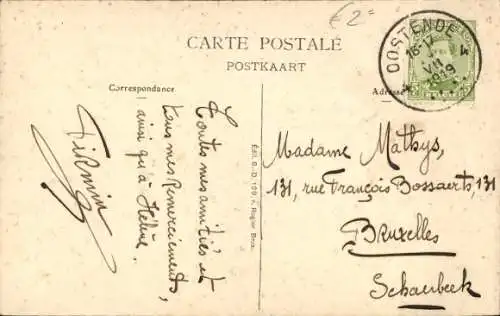 €2=
CARTE POSTALE
POSTKAART
Correspondance
Adresse
OOSTENDE
16-17
VII
1919
4
Toutes mes amitiés et
tous mes remerciements,
ainsi qu'à Hélène.
Firmin
Madame Mathys,
131, rue François Bossaerts, 131
Bruxelles
Schaerbeek